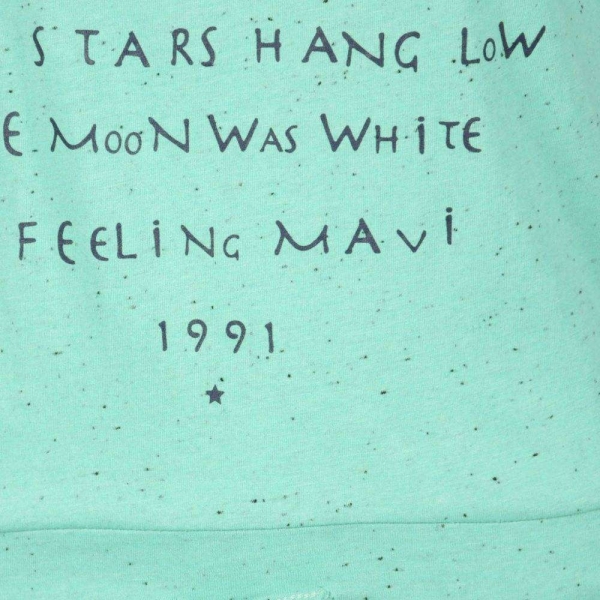 STARS HANG LOW
E MOON WAS WHITE
FEELING MAVI
1991